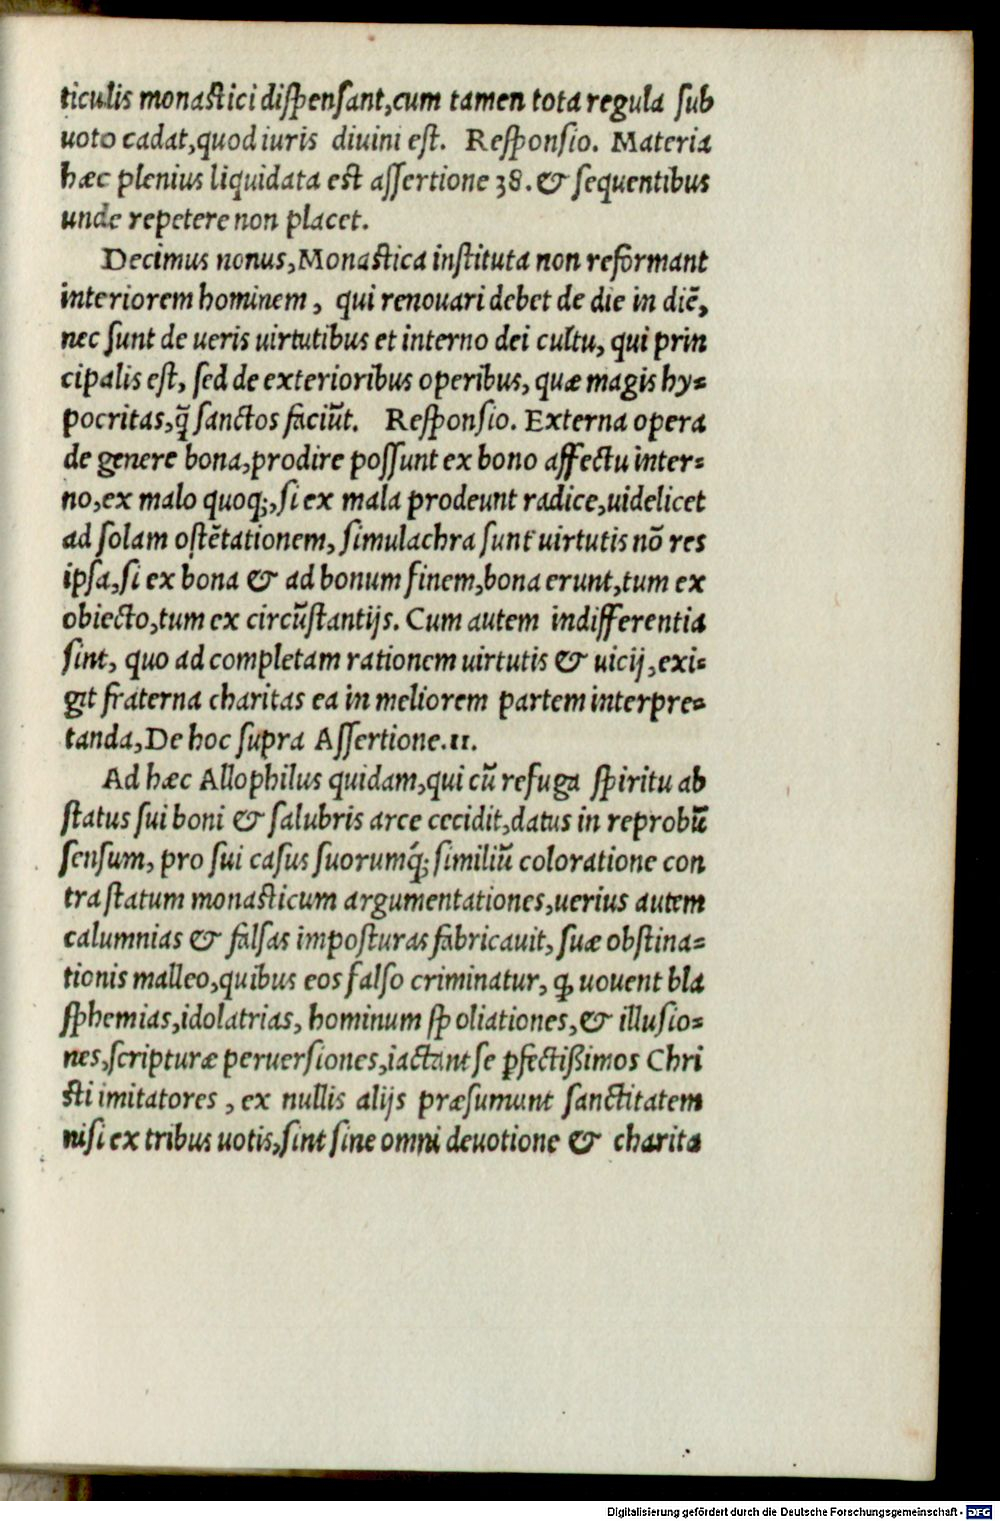 ticulis monastici dispensant,cum tamen tota regula sub
uoto cadat,quod iuris diuini est. Responsio. Materia
hæc plenius liquidata est assertione 38. & sequentibus
unde repetere non placet.
Decimus nonus,Monastica instituta non reformant
interiorem hominem, qui renouari debet de die in diē,
nec sunt de ueris uirtutibus et interno dei cultu, qui prin
cipalis est, sed de exterioribus operibus, quæ magis hy=
pocritas,q̃ sanctos faciūt. Responsio. Externa opera
de genere bona,prodire possunt ex bono affectu inter=
no,ex malo quoq;,si ex mala prodeunt radice,uidelicet
ad solam ostētationem, simulachra sunt uirtutis nō res
ipsa,si ex bona & ad bonum finem,bona erunt,tum ex
obiecto,tum ex circūstantijs. Cum autem indifferentia
sint, quo ad completam rationem uirtutis & uicij,exi=
git fraterna charitas ea in meliorem partem interpre=
tanda,De hoc supra Assertione.11.
Ad hæc Allophilus quidam,qui cū refuga spiritu ab
status sui boni & salubris arce cecidit,datus in reprobū
sensum, pro sui casus suorumq́; similiū coloratione con
tra statum monasticum argumentationes,uerius autem
calumnias & falsas imposturas fabricauit, suæ obstina=
tionis malleo,quibus eos falso criminatur, ꝙ uouent bla
sphemias,idolatrias, hominum spoliationes,& illusio=
nes,scripturæ peruersiones,iactant se ꝑfectißimos Chri
sti imitatores, ex nullis alijs præsumunt sanctitatem
nisi ex tribus uotis,sint sine omni deuotione & charita
Digitalisierung gefördert durch die Deutsche Forschungsgemeinschaft - DFG